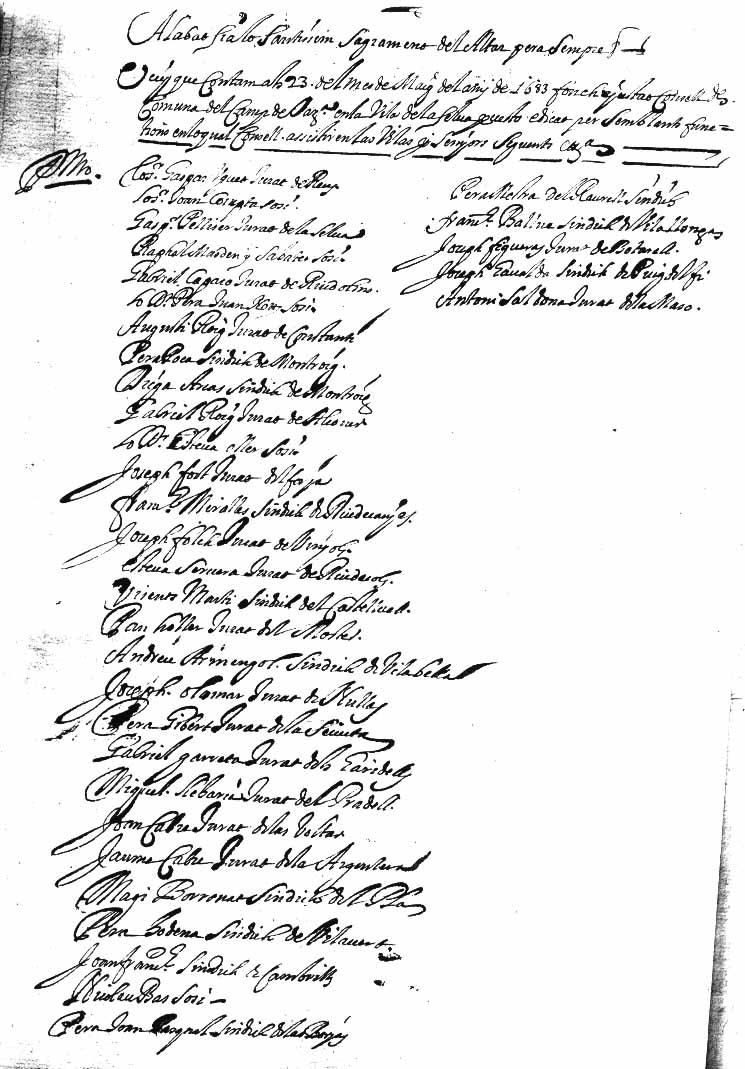 Alabat sia lo Santissim Sagrament del Altar pera Sempre
Vuy que Contam als 23 del mes de Maig del any de 1693 fonch ajustat Consell de
Comuna del Camp de en la Vila de la Selva puesto edicat per Semblants func-
tions en lo qual Consell assistiren las Vilas y Senyors seguents
Primo.
Gaspar Jurat de Reus
Joan Sosi.
Pellisser Jurat de la Selva
Raphel y Sabater Sosi
Gabriel Jurat de Riudoms
Lo Dr. Pera Juan Sosi
Augusti Roig Jurat de Constanti
Pera Roca Sindich de Montroig.
Arcas Sindich de Montroig
Gabriel Roig Jurat de Aliorar
Lo Dr. Esteva oller Sosi
Joseph fort Jurat del forja
Miralles Sindich de Riudecanyes.
Joseph folch Jurat de Vinyols.
Esteva Servera Jurat de Riudecols.
Vicents Marti Sindich del Castellvell.
Pau holler Jurat del Morter.
Andreu Armengol Sindich de Vilabella
Joseph olomar Jurat de Nullas
Pera Gibert Jurat de la Secuita
Gabriel garreta Jurat dels Garidells
Miquel Jurat del Pradell.
Joan Cabre Jurat de las Voltas
Jaume Cabre Jurat de la Argentera
Magi Borronat Sindich del Pla
Pera Bodena Sindich de Vilavert
Joan Sindich de Cambrils
Nicolau Bas Sosi
Pera Joan Pasqual Sindich de las Borjas
Pera Mestra del Maurell Sindich
Balira Sindich de Vilallonga
Joseph figueras Jurat de Botarell.
Joseph Gavalda Sindich de Puigdelfi
Antoni Saldona Jurat de la Maso.